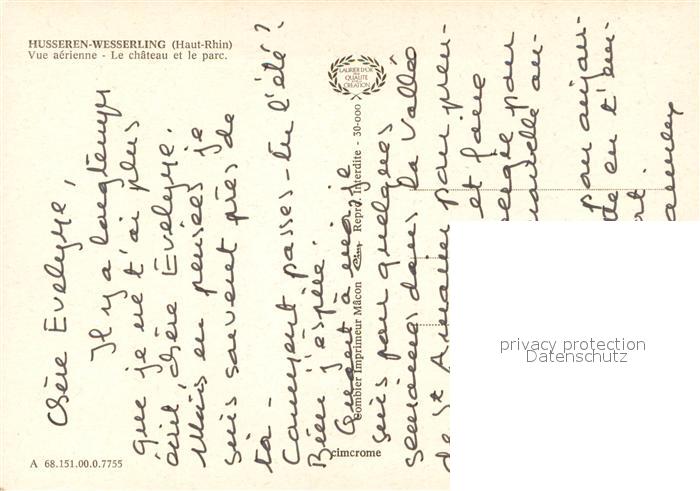 HUSSEREN-WESSERLING (Haut-Rhin)
Vue aérienne - Le château et le parc.
LAURIER D'OR
DE LA
QUALITÉ
CRÉATION
Combier Imprimeur Mâcon Cim Repro. Interdite - 30-000
cimcrome
A 68.151.00.0.7755
Chère Evelyne,
Il y a longtemps
que je ne t'ai plus
écrit, chère Evelyne.
Mais en pensées je
suis souvent près de
toi-
Comment passes-tu l'été?
Bien j'espère.
Quant à moi je
suis pour quelques
semaines dans la Vallée
de St Amarin pour pren-
et faire
pour
an-
pour aujour-
en t'em-
privacy protection
Datenschutz